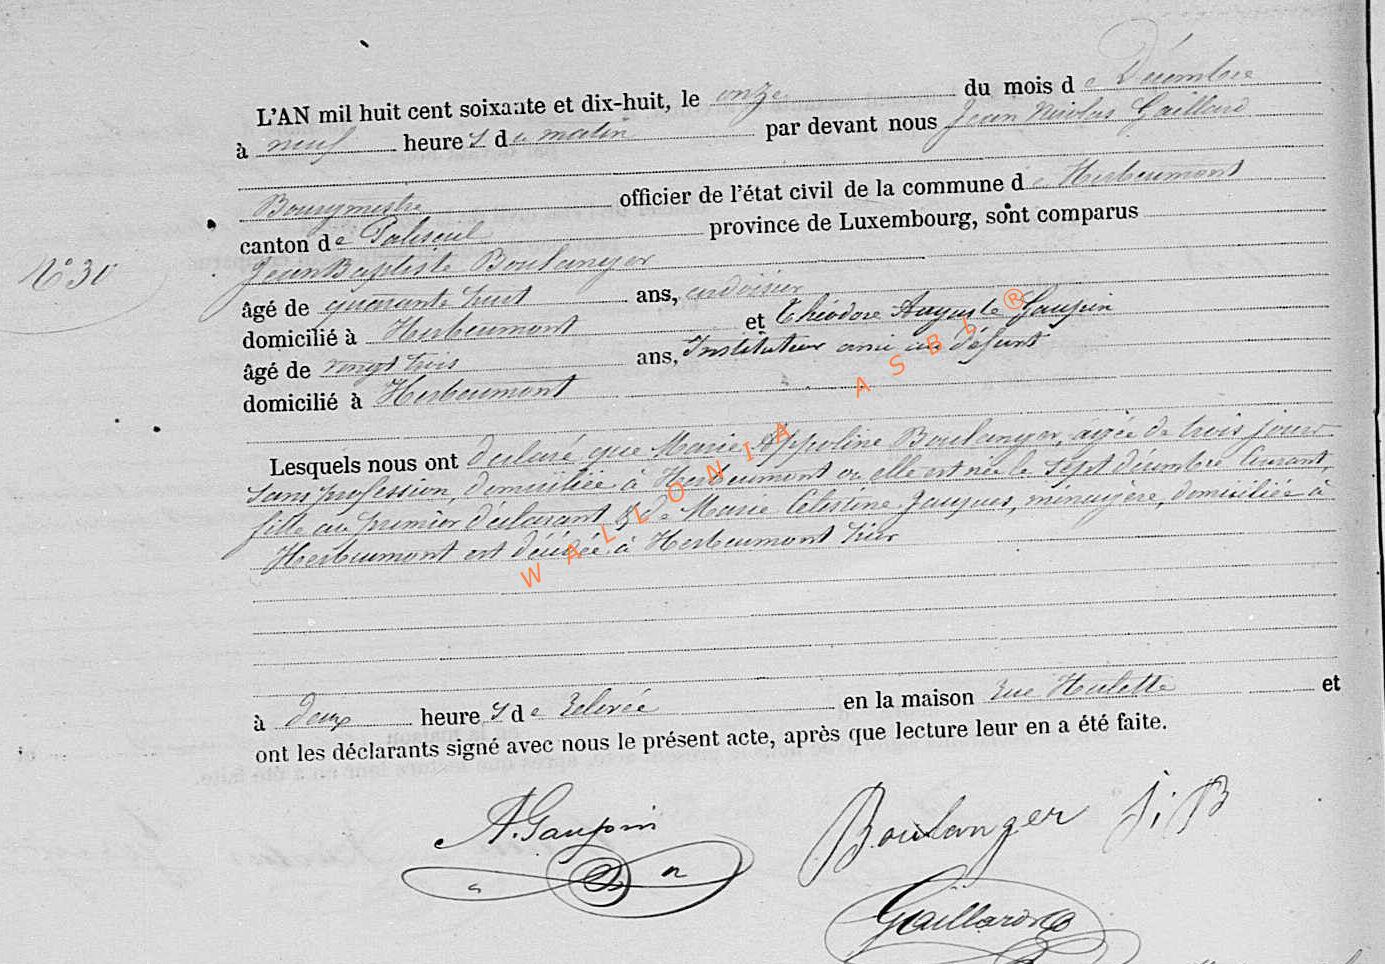 L'AN mil huit cent soixante et dix-huit, le onze du mois de Décembre
à neuf heures du matin par devant nous Jean Nicolas Gaillard
Bourgmestre officier de l'état civil de la commune de Herbeumont
canton de Paliseul province de Luxembourg, sont comparus
N° 30
Jean Baptiste Boulanger
âgé de quarante huit ans, ardoisier
domicilié à Herbeumont et Théodore Auguste Gaupin
âgé de vingt trois ans, Instituteur ami au défunt
domicilié à Herbeumont
Lesquels nous ont déclaré que Marie Appoline Boulanger, agée de trois jours
sans profession, domiciliée à Herbeumont où elle est née le sept décembre courant,
fille au premier déclarant & de Marie Célestine Jacques, ménagère, domiciliée à
Herbeumont est décédée à Herbeumont hier
à deux heures de relevée en la maison rue Hulette et
ont les déclarants signé avec nous le présent acte, après que lecture leur en a été faite.
A. Gaupin Boulanger J; B
Gaillard
WALLONIA ASBL ®